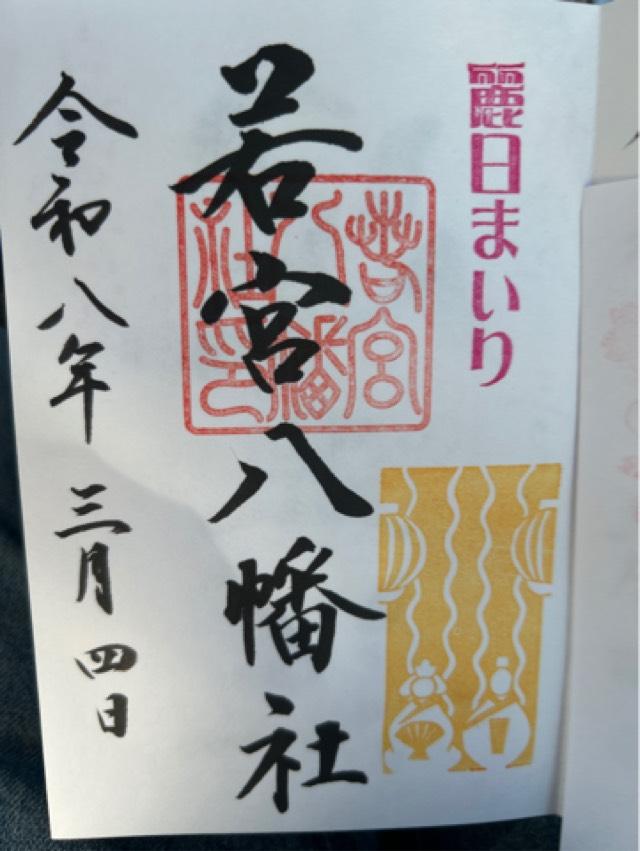 麗日まいり
若宮八幡社
若宮八幡社印
令和八年三月四日